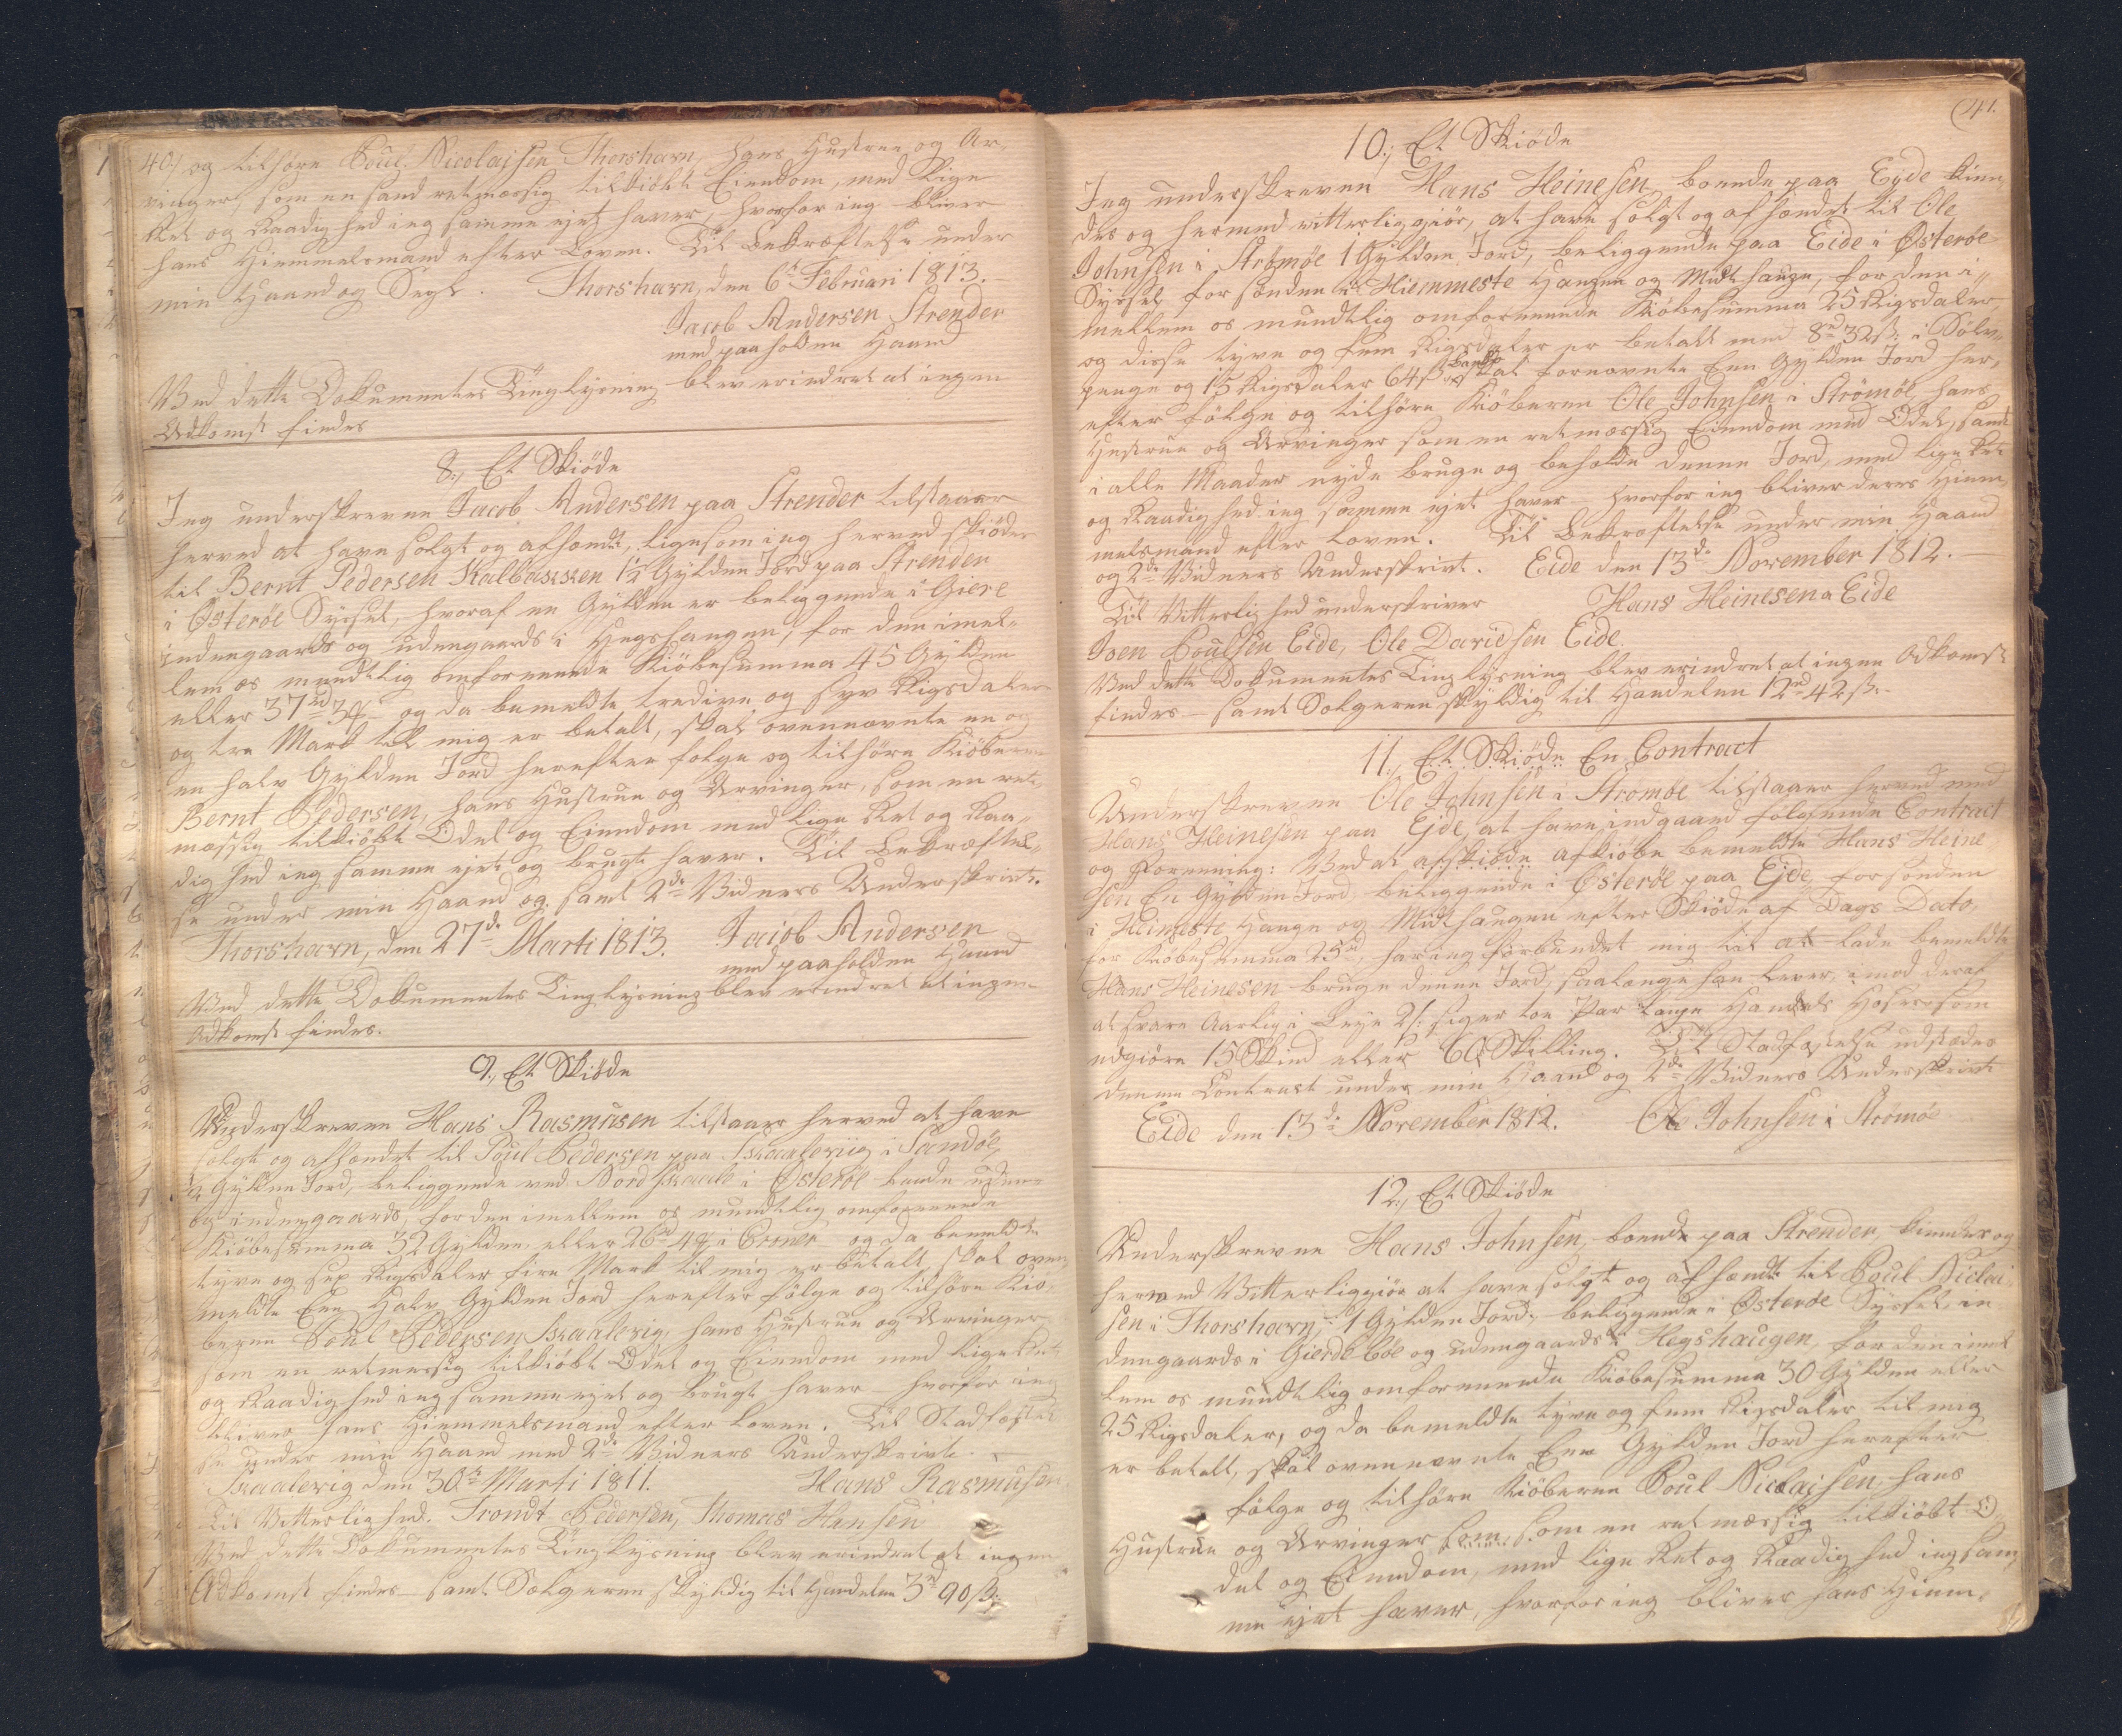 40/ og tilhøre Poul Nicolajsen Thorshavn, hans Hustrue og Ar,,
vinger, som en sand retmæssig tilkiöbt Eiendom, med lige
Ret og Raadighed ieg samme ejet haver, hvorfor ieg bliver
hans Hiemmelsmand efter Loven. Til Bekræftelse under
min Haand og Segl. Thorshavn, den 6t Februari 1813.
Jacob Andersen Strender
med paaholden Haand
Ved dette Dokumentes Tinglysning blev erindret at ingen
Adkomst findes
8., Et Skiöde
Jeg underskrevne Jacob Andersen paa Strender tilstaaer
herved at have solgt og afhændt, ligesom ieg herved skiöder
til Bernt Pedersen Kalbaksen 1½ Gylden Jord paa Strenden
i Österöe Syssel, hvoraf en Gylden er beliggende i Giere
indengaards og udengaards i Hegshaugen, for den imel,,
lem os mundtlig omforenende Kiöbesumma 45 Gylden
eller 37rd 3 og da bemeldte tredive og syv Rigsdaler
og tre Mark til mig er betalt, skal ovennævnte en og
en halv Gylden Jord herefter følge og tilhøre Kiöberen
Bernt Pedersen, hans Hustrue og Arvinger, som en ret,,
mæssig tilkiöbt Odel og Eiendom med lige Ret og Raa,,
dighed ieg samme ejet og brugt haver. Til Bekræftel,,
se under min Haand og samt 2de Vidners Underskrivt.
Thorshavn, den 27de Marti 1813. Jacob Andersen
med paaholden Haand
Ved dette Dokumentes Tinglysning blev erindret at ingen
Adkomst findes.
9., Et Skiöde
Underskreven Hans Rasmusen tilstaaer herved at have
solgt og afhændet til Poul Pedersen paa Skaalevig i Sandöe,
½ Gylden Jord, beliggende ved Nordskaale i Österöe baade uden-
og indengaards, for den imellem os mundtlig omforenende
Kiöbesumma 32 Gylden, eller 26rd 4 i Croner og da bemeldte
tyve og sex Rigsdaler fire Mark til mig er betalt, skal oven
meldte Een Halv Gylden Jord herefter følge og tilhøre Kiö,
beren Poul Pedersen Skaalevig, hans Hustrue og Arvinger
som en retmæssig tilkiöbt Odel og Eiendom med lige Ret
og Raadighed ieg samme ejet og brugt haver hvorfor ieg
bliver hans Hiemmelsmand efter Loven. Til Stadfæstel
se under min Haand med 2de Vidners Underskrivt.
Skaalevig den 30te Marti 1811. Hans Rasmusen
Til Vitterlighed. Trondt Pedersen, Thomas Hansen
Ved dette Dokumentes Tinglysning blev erindret at ingen
Adkomst findes samt Sælgeren skyldig til Handelen 3rd 90ß.
41.
10., Et Skiöde
Jeg underskreven Hans Heinesen, boende paa Eyde kien
des og hermed vitterliggiör, at have solgt og afhændet til Ole
Johnsen i Strömöe 1 Gylden Jord, beliggende paa Eide i Österöe
Syssel for sønden i Hiemmeste Haugen og Midthauge, for den i,,
mellem os mundtlig omforenende Kiöbesumma 25 Rigsdaler
og disse tyve og fem Rigsdaler er betalt med 8rd 32ß. i Sölv,,
penge og 15 Rigsdaler 64ß skal fornævnte Een Gylden Jord her,,
efter følge og tilhøre Kiöberen Ole Johnsen i Strömöe, hans
Hustrue og Arvinger som en retmæssig Eiendom med Odel, samt
i alle Maader nyde bruge og beholde denne Jord, med lige Ret
og Raadighed ieg samme ejet haver hvorfor ieg bliver deres Hiem,
melsmand efter Loven. Til Bekræftelse under min Haand
og 2de Vidners Underskrivt. Eide den 13de November 1812.
Til Vitterlighed underskriver Hans Heinesen a Eide
Joen Poulsen Eide, Ole Davidsen Eide.
Ved dette Dokumentes Tinglysning blev erindret at ingen Adkomst
findes samt Sælgeren skyldig til Handelen 12rd 42ß.
11., Et Skiöde En Contract
Underskreven Ole Johnsen i Strömöe tilstaaer herved med
Hans Heinesen paa Ejde, at have indgaaed følgende Contract
og Forening: Ved at afskiöde afkiöbe bemeldte Hans Heine
sen En Gylden Jord beliggende i Österöe paa Ejde for sønden
i Heimeste Hauge og Midthaugen efter Skiöde af Dags Dato,
for Kiöbesumma 25rd, har ieg forbundet mig til at lade bemeldte
Hans Heinesen bruge denne Jord, saalænge han lever, imod deraf
at svare Aarlig i Leye 2/: siger toe Par lange Handels Hoser som
udgiöre 15 Skind eller 60 Skilling. Til Stadfæstelse udstædes
denne Contract under min Haand og 2de Vidners Underskrivt
Eide den 13de November 1812. Ole Johnsen i Strömöe
12., Et Skiöde
Underskrevne Hans Johnsen, boende paa Strender, kiendes og
herved Vitterliggiör at have solgt og afhændt til Poul Niclai
sen i Thorshavn, 1 Gylden Jord, beliggende i Österöe Syssel, in
dengaards i Gierde böe og udengaards i Hegshaugen, for den imel
lem os mundtlig omforenende Kiöbesumma 30 Gylden eller
25 Rigsdaler, og da bemeldte tyve og fem Rigsdaler til mig
er betalt, skal ovennævnte Een Gylden Jord herefter
følge og tilhøre Kiöberen Poul Niclaisen, hans
Hustrue og Arvinger som, som en retmæssig tilkiöbt O,,
del og Eiendom, med lige Ret og Raadighed ieg sam,
me ejet haver, hvorfor ieg bliver hans Hiem,